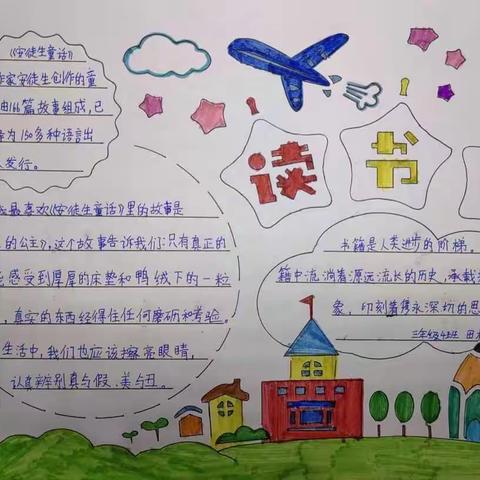 《安徒生童话》
作家安徒生创作的童
由166篇故事组成,已
为150多种语言出
发行。
读书
最喜欢《安徒生童话》里的故事是
的公主》,这个故事告诉我们:只有真正的
感受到厚厚的床垫和鸭绒下的一粒
,真实的东西经得住任何磨砺和考验。
生活中,我们也应该擦亮眼睛,
认真辨别真与假、美与丑。
书籍是人类进步的阶梯。
籍中流淌着源远流长的历史,承载
象,印刻着隽永深切的思
三年级4班 田